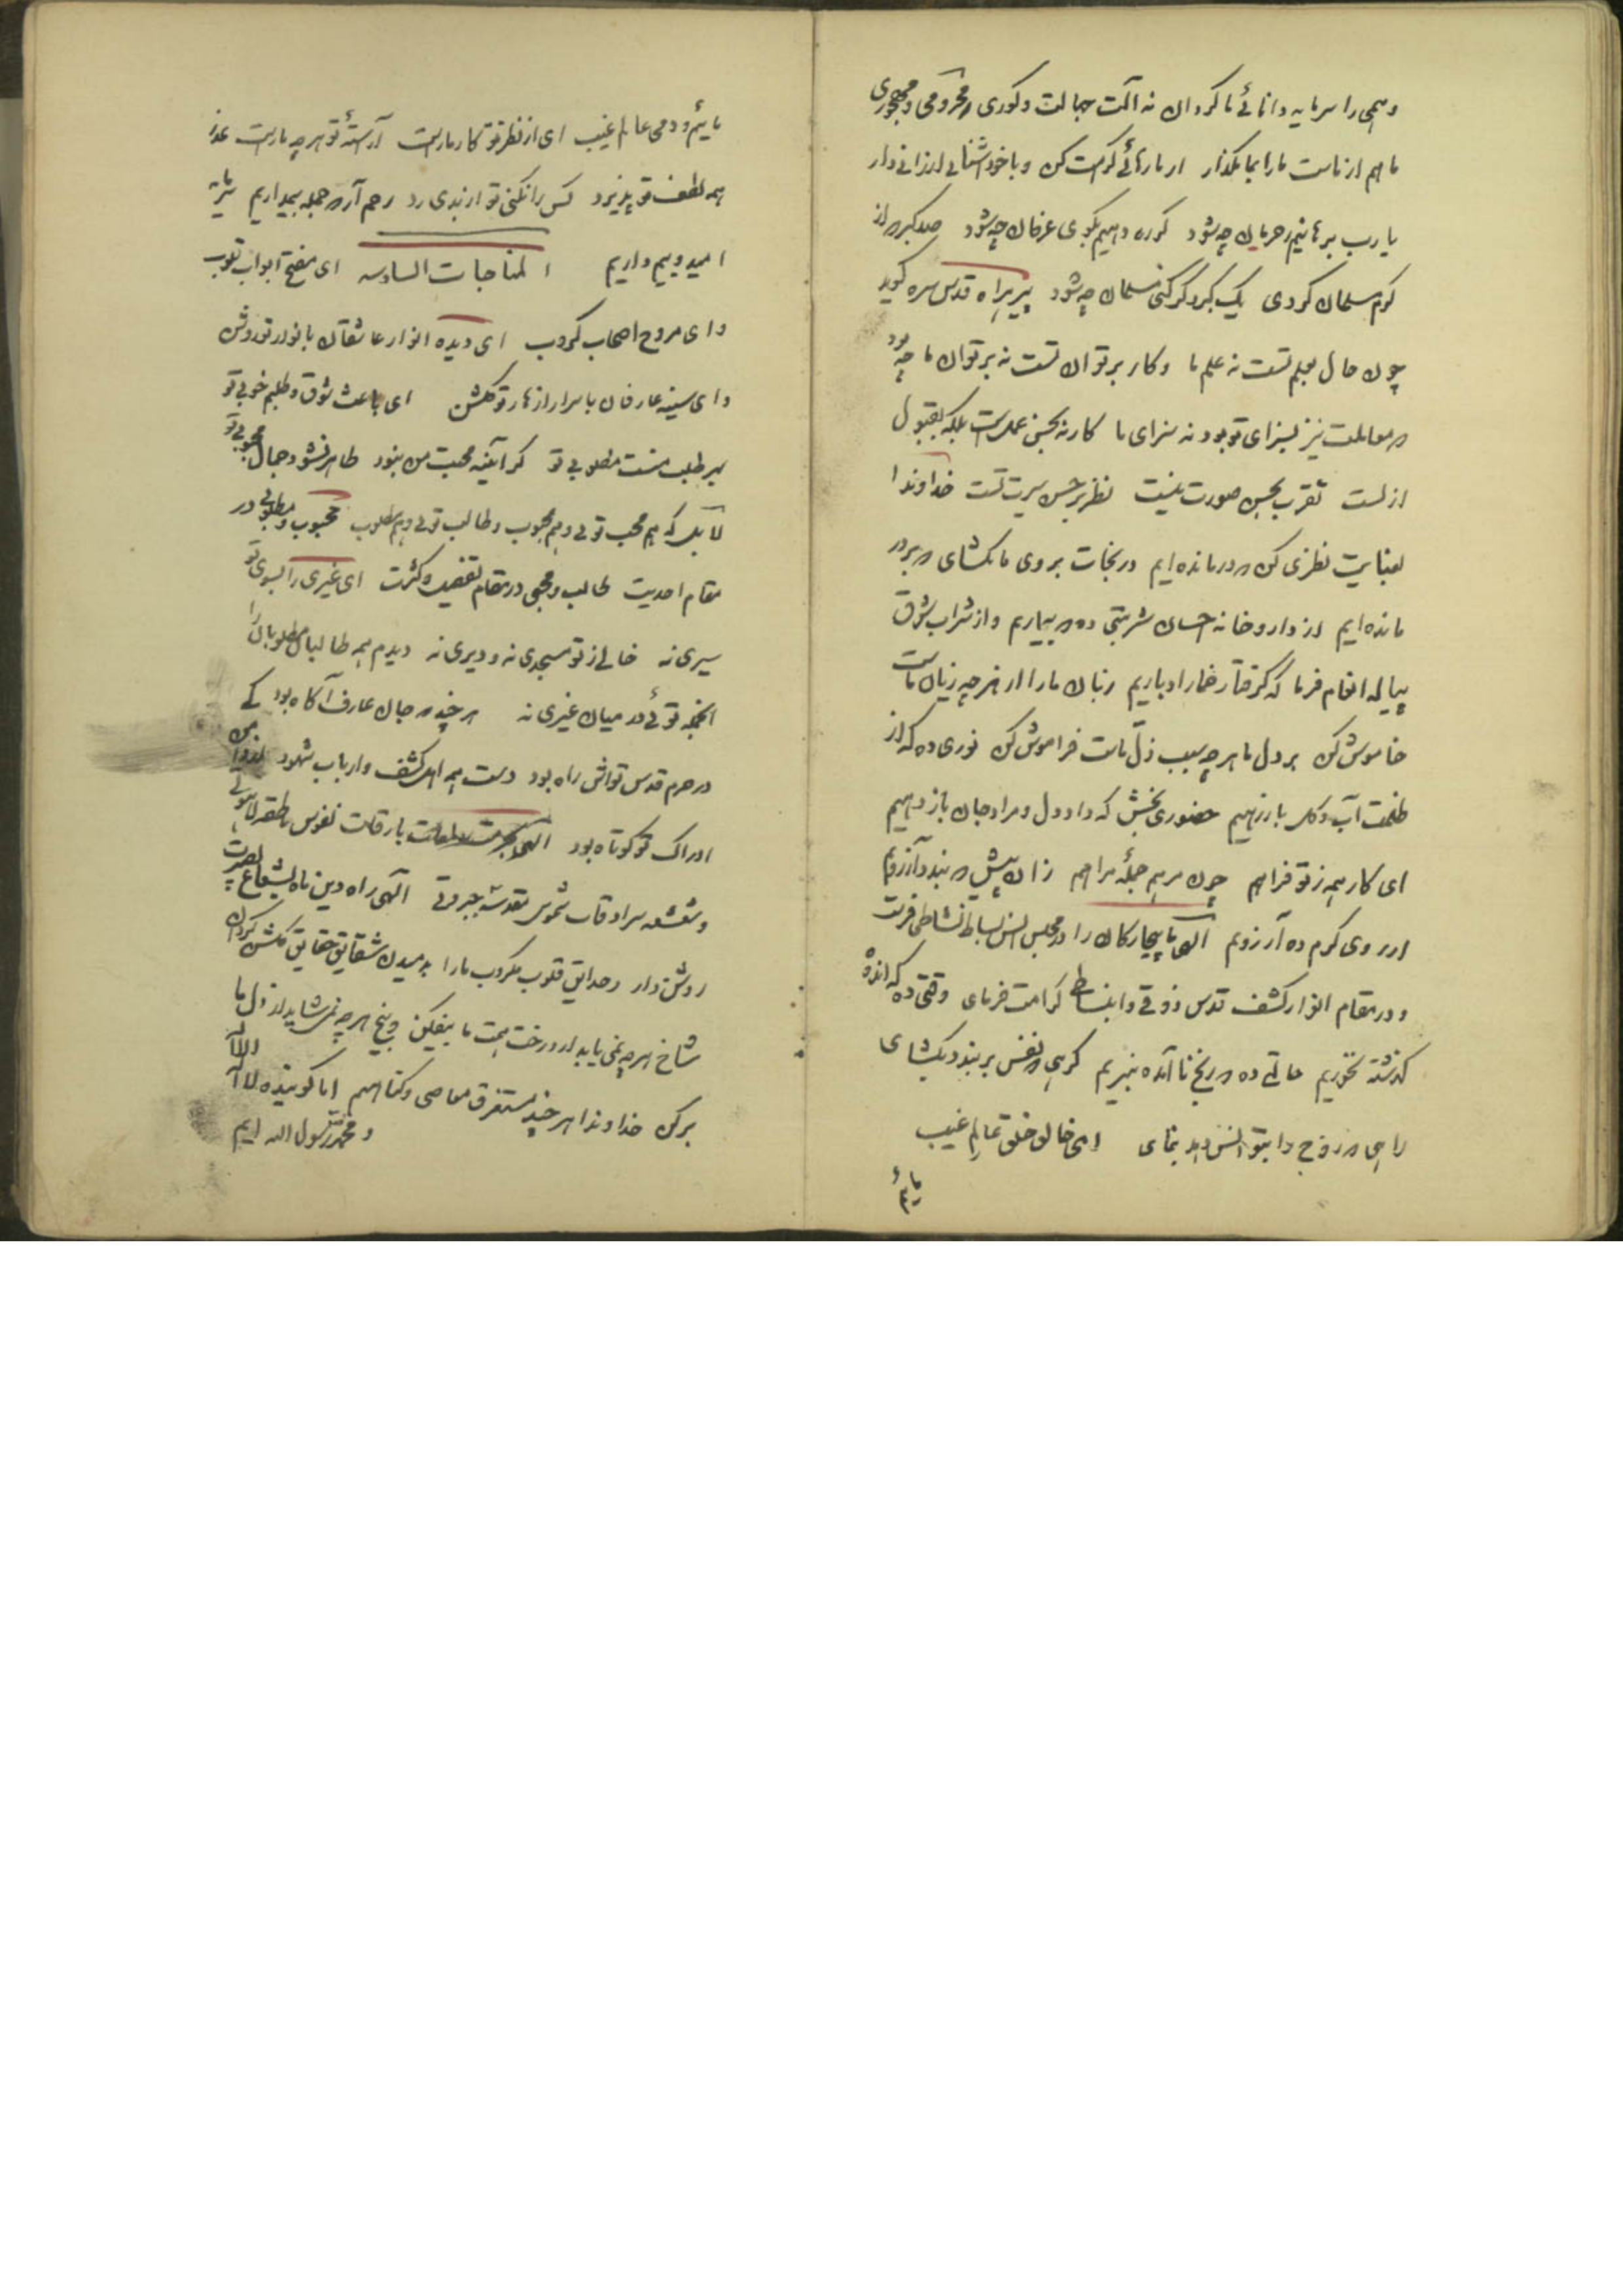 وهمی را سرمایه دانائی ما کردان نه آلت جهالت و کوری و محرومی و مهجوری
ما هم از ماست ما را بما مکذار از ما رهائی کرامت کن و با خود آشنائی ارزانی دار
یا رب برهانیم ز حرمان چه شود کوره دهیم بکوی عرفان چه شود صد کبر که از
کرم مسلمان کردی یک کبر دکر کنی مسلمان چه شود پیر هراه قدس سره کوید
چون حال بعلم تست نه علم ما و کار بر توان تست نه بر توان ما چه بود
که معاملت نیز بسزای تو بود نه سزای ما کار نه بحسن عملست بلکه بقبول
ازلست تقرب بحسن صورت نیست نظر بر حسن سیرتست خداوندا
بعنایت نظری کن که درمانده ایم در نجات بروی ما بکشای که بر در
مانده ایم از داروخانه احسان شربتی ده که بیماریم و از شراب شوق
پیاله انعام فرما که کرفتار خمار ادباریم زبان ما را از هر چه زیان ماست
خاموش کن بر دل ما هر چه سبب ذل ماست فراموش کن نوری ده که از
ظلمت آب و کل باز رهیم حضوری بخش که داد دل و مراد جان باز دهیم
ای کار همه ز تو فراهم چون مرهم جمله مراهم زان پیش که بندد آرزویم
از روی کرم ده آرزویم آلهی ما بیچارکان را در مجلس انس بساط نشاطی فرست
و در مقام انوار کشف قدس ذوقی و انبساطی کرامت فرمای وقتی ده که انده
کذشته نخوریم حالتی ده که رنج نا آمده نبریم کرهی که نفس بر بندد بکشای
راهی که روح را بتو انس دهد بنمای ای خالق خلق و عالم غیب
مائیم
مائیم و دمی عالم غیب ای از نظر تو کار ما راست آرسته تو هر چه ما راست عذر
همه لطف تو پذیرد کس را نکنی تو از بدی رد رحم آر که جمله بیمداریم
امید و بیم داریم المناجات السادسه ای مفتح ابواب قلوب
و ای مروح اصحاب کروب ای دیده انوار عاشقان با نوار تو روشن
و ای سینه عارفان باسرار ازهار تو کلشن ای باعث شوق و طلبم خوبی تو
بر طلب منست مطلوبی تو کر آئینه محبت من نبود ظاهر نشود جمال محبوبی تو
لا بلکه هم محب توئی و هم محبوب و طالب توئی و هم مطلوب محبوب و مطلوبی در
مقام احدیت طالب و محبی در مقام تفصیل و کثرت ای غیری را بسوی تو
سیری نه خالی از تو مسجدی نه و دیری نه دیدم همه طالبان و مطلوبان را
آنجمله توئی در میان غیری نه هر چند که جان عارف آکاه بود کی
در حرم قدس تواش راه بود دست همه اهل کشف و ارباب شهود از دامن
ادراک تو کوتاه بود الهی بحرمت لمعات بارقات نفوس ناطقه لاهوتی
و شعشعه سرادقات شموس مقدسه جبروتی آلهی راه دین ما بشعاع بصیرت
روشن دار و حدایق قلوب مکروب ما را بدمیدن شقایق حقایق کلشن کردان
شاخ هر چه نمی باید از درخت همت ما بیفکن و بیخ هر چه نمی شاید از دل ما
بر کن خداوندا هر چند مستغرق معاصی و کناهیم اما کوینده لا اله الا الله
و محمد رسول الله ایم